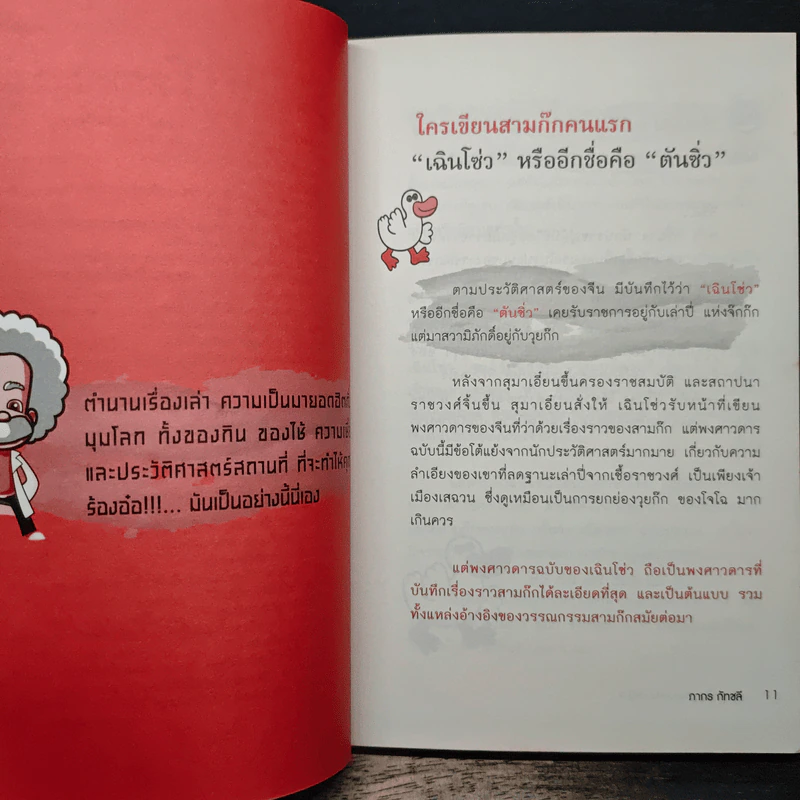 ตำนานเรื่องเล่า ความเป็นมายอดฮิต
มุมโลก ทั้งของกิน ของใช้
และประวัติศาสตร์สถานที่ ที่จะทำให้
ร้องอ๋อ!!!... มันเป็นอย่างนี้นี่เอง
ใครเขียนสามก๊กคนแรก
“เฉินโซ่ว” หรืออีกชื่อคือ “ตันซิ่ว”
ตามประวัติศาสตร์ของจีน มีบันทึกไว้ว่า “เฉินโซ่ว”
หรืออีกชื่อคือ “ตันซิ่ว” เคยรับราชการอยู่กับเล่าปี่ แห่งจ๊กก๊ก
แต่มาสวามิภักดิ์อยู่กับวุยก๊ก
หลังจากสุมาเอี๋ยนขึ้นครองราชสมบัติ และสถาปนา
ราชวงศ์จิ้นขึ้น สุมาเอี๋ยนสั่งให้ เฉินโซ่วรับหน้าที่เขียน
พงศาวดารของจีนที่ว่าด้วยเรื่องราวของสามก๊ก แต่พงศาวดาร
ฉบับนี้มีข้อโต้แย้งจากนักประวัติศาสตร์มากมาย เกี่ยวกับความ
ลำเอียงของเขาที่ลดฐานะเล่าปี่จากเชื้อราชวงศ์ เป็นเพียงเจ้า
เมืองเสฉวน ซึ่งดูเหมือนเป็นการยกย่องวุยก๊ก ของโจโฉ มาก
เกินควร
แต่พงศาวดารฉบับของเฉินโซ่ว ถือเป็นพงศาวดารที่
บันทึกเรื่องราวสามก๊กได้ละเอียดที่สุด และเป็นต้นแบบ รวม
ทั้งแหล่งอ้างอิงของวรรณกรรมสามก๊กสมัยต่อมา
ภากร กัทชลี 11